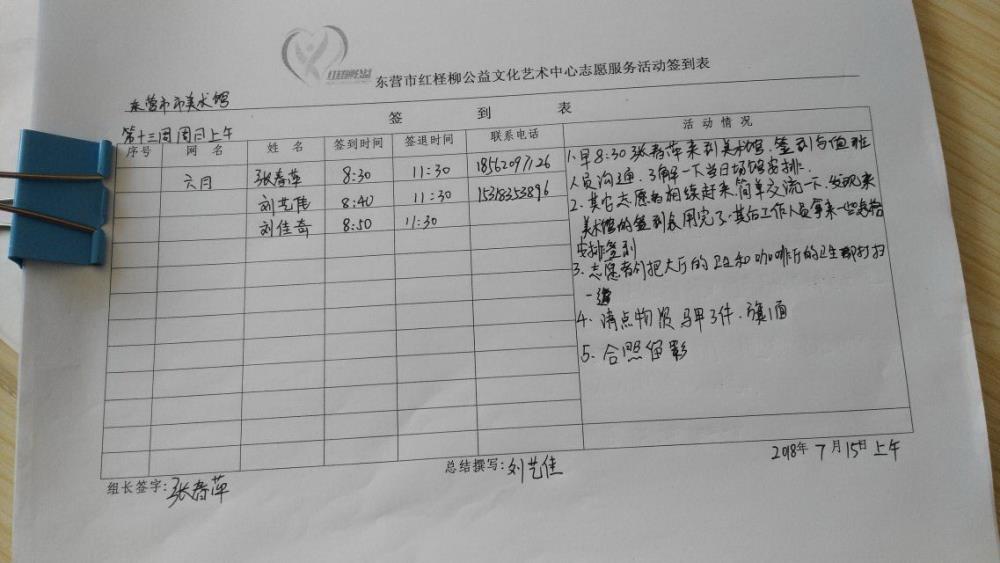 东营市红柽柳公益文化艺术中心志愿服务活动签到表
东营市市美术馆
第十三周周日上午
签到表
序号 网名 姓名 签到时间 签退时间 联系电话 活动情况
六月 张春萍 8:30 11:30 18562097126
刘艺伟 8:40 11:30 15318353896
刘佳奇 8:50 11:30
1.早8:30张春萍来到美术馆.签到与值班
人员沟通.了解一下当日场馆安排.
2.其它志愿者相续起来.简单交流一下.发现来
美术馆的签到表用完了.其后工作人员拿来一些表格
安排签到
3.志愿者们把大厅的卫生和咖啡厅的卫生都打扫
一遍
4.清点物资 马甲3件.旗1面
5.合照留影
2018年7月15日上午
组长签字:张春萍
总结撰写:刘艺佳